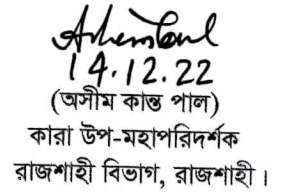 14.12.22
(অসীম কান্ত পাল)
কারা উপ-মহাপরিদর্শক
রাজশাহী বিভাগ, রাজশাহী।